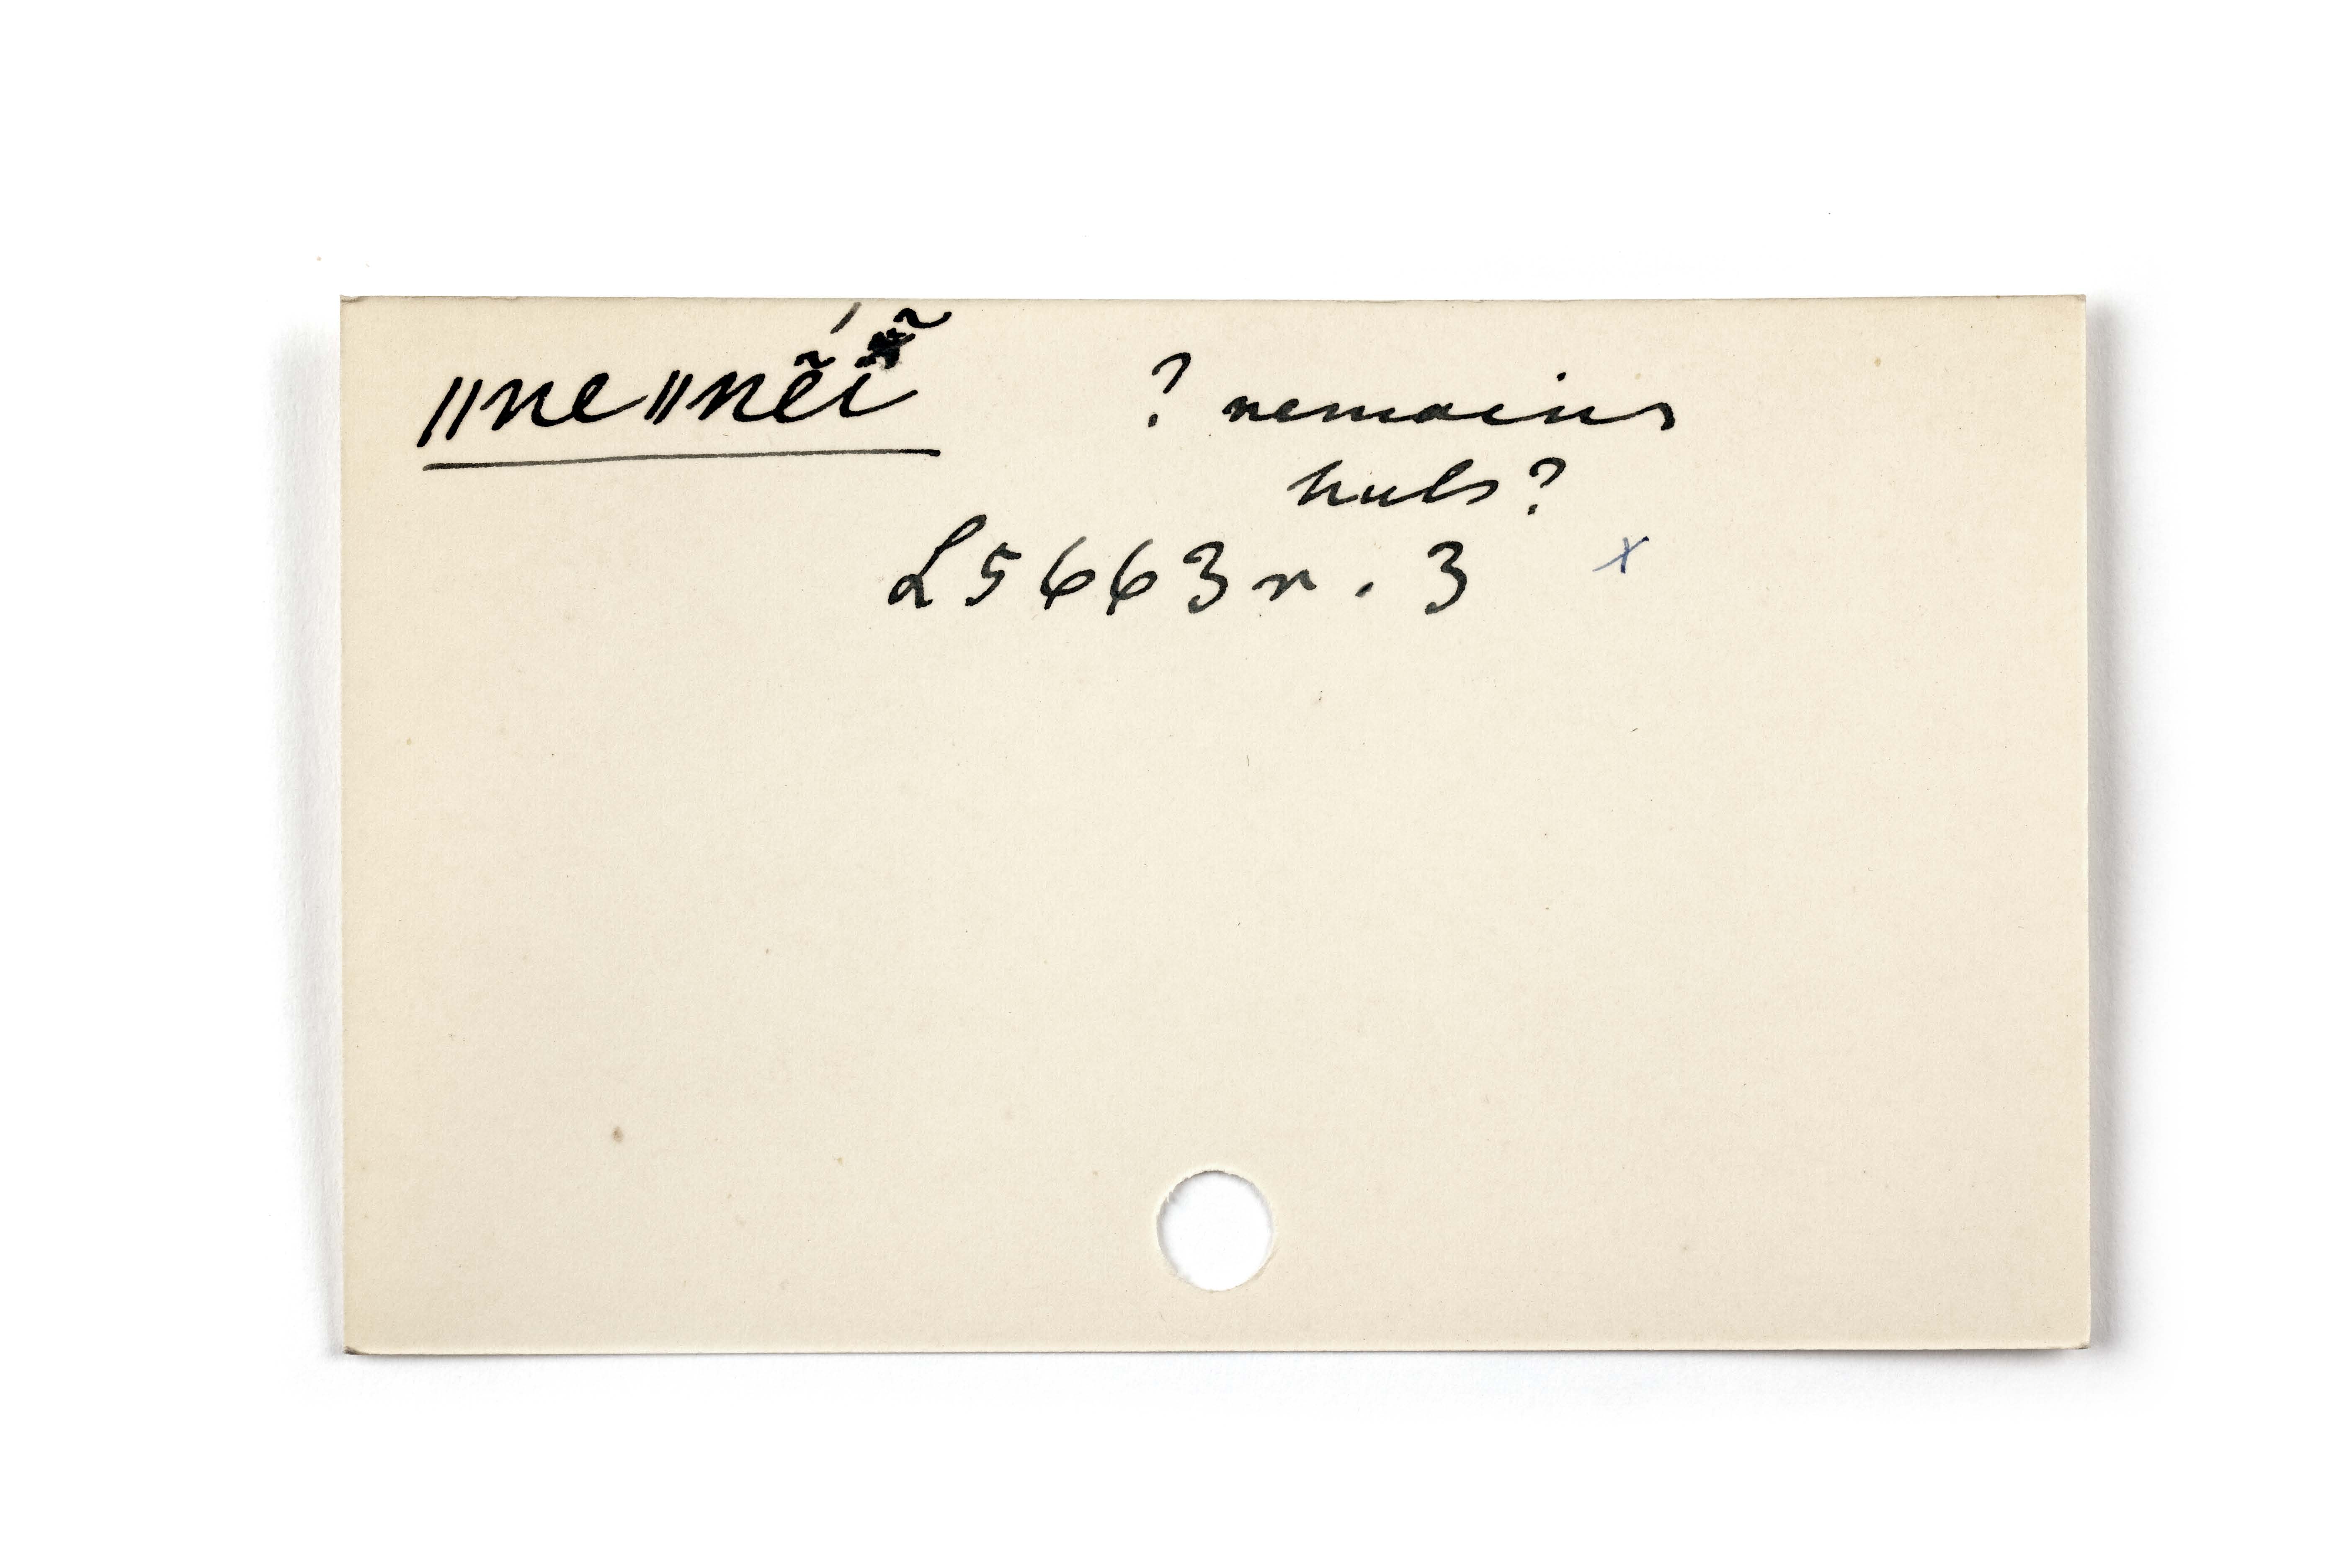 ‖ne‖nẽĩ́ ? remains
huts?
L5663r. 3 x